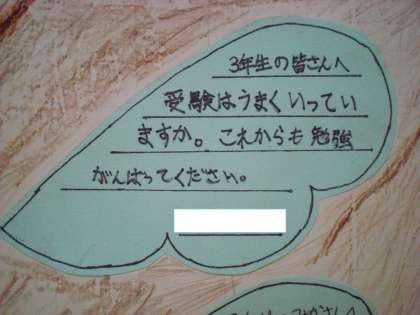 3年生の皆さんへ
受験はうまくいってい
ますか。これからも勉強
がんばってください。